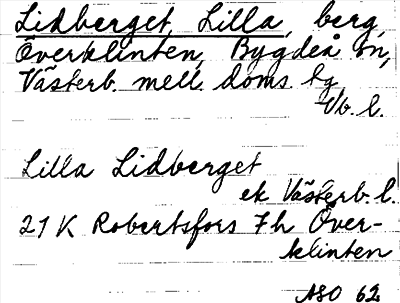 Lidberget, Lilla, berg,
Överklinten, Bygdeå sn,
Västerb. mell. doms. tg
Vb. l.
Lilla Lidberget
ek Västerb. l.
21 K Robertsfors 7 h Över-
klinten
ASO 62